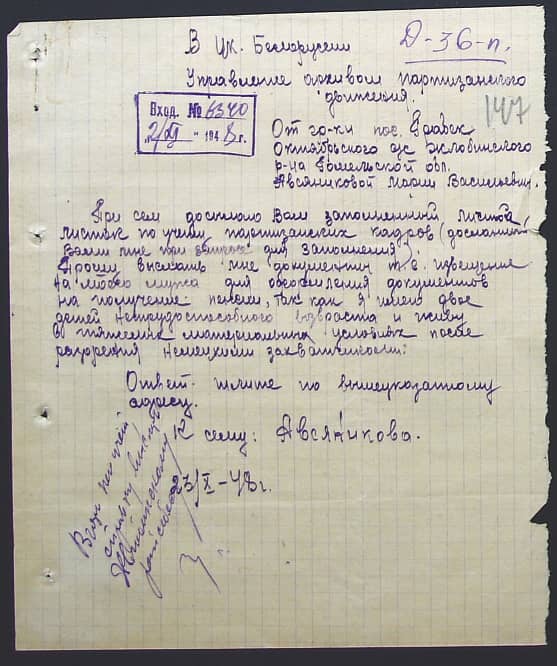 В Цк. Белоруссии
Д-36-п.
Управление архивом партизанского
движения.
147
Вход. № 6340
"2/XI" 1948 г.
От гр-ки пос. Бравск
Октябрьского с/с
р-на Гомельской обл.
Авсяниковой Марии Васильевны.
При сем досылаю Вам заполненный листок
листок по учету партизанских кадров (досланный
Вами мне при для заполнения).
Прошу выслать мне документы т.е. извещение
на моего мужа для оформления документов
на получение пенсии, так как я имею двое
детей нетрудоспособного возраста и живу
в тяжелых материальных условиях после
разорения немецкими захватчиками:
Ответ шлите по вышеуказанному
адресу.
К сему: Авсяникова.
23/X-48г.